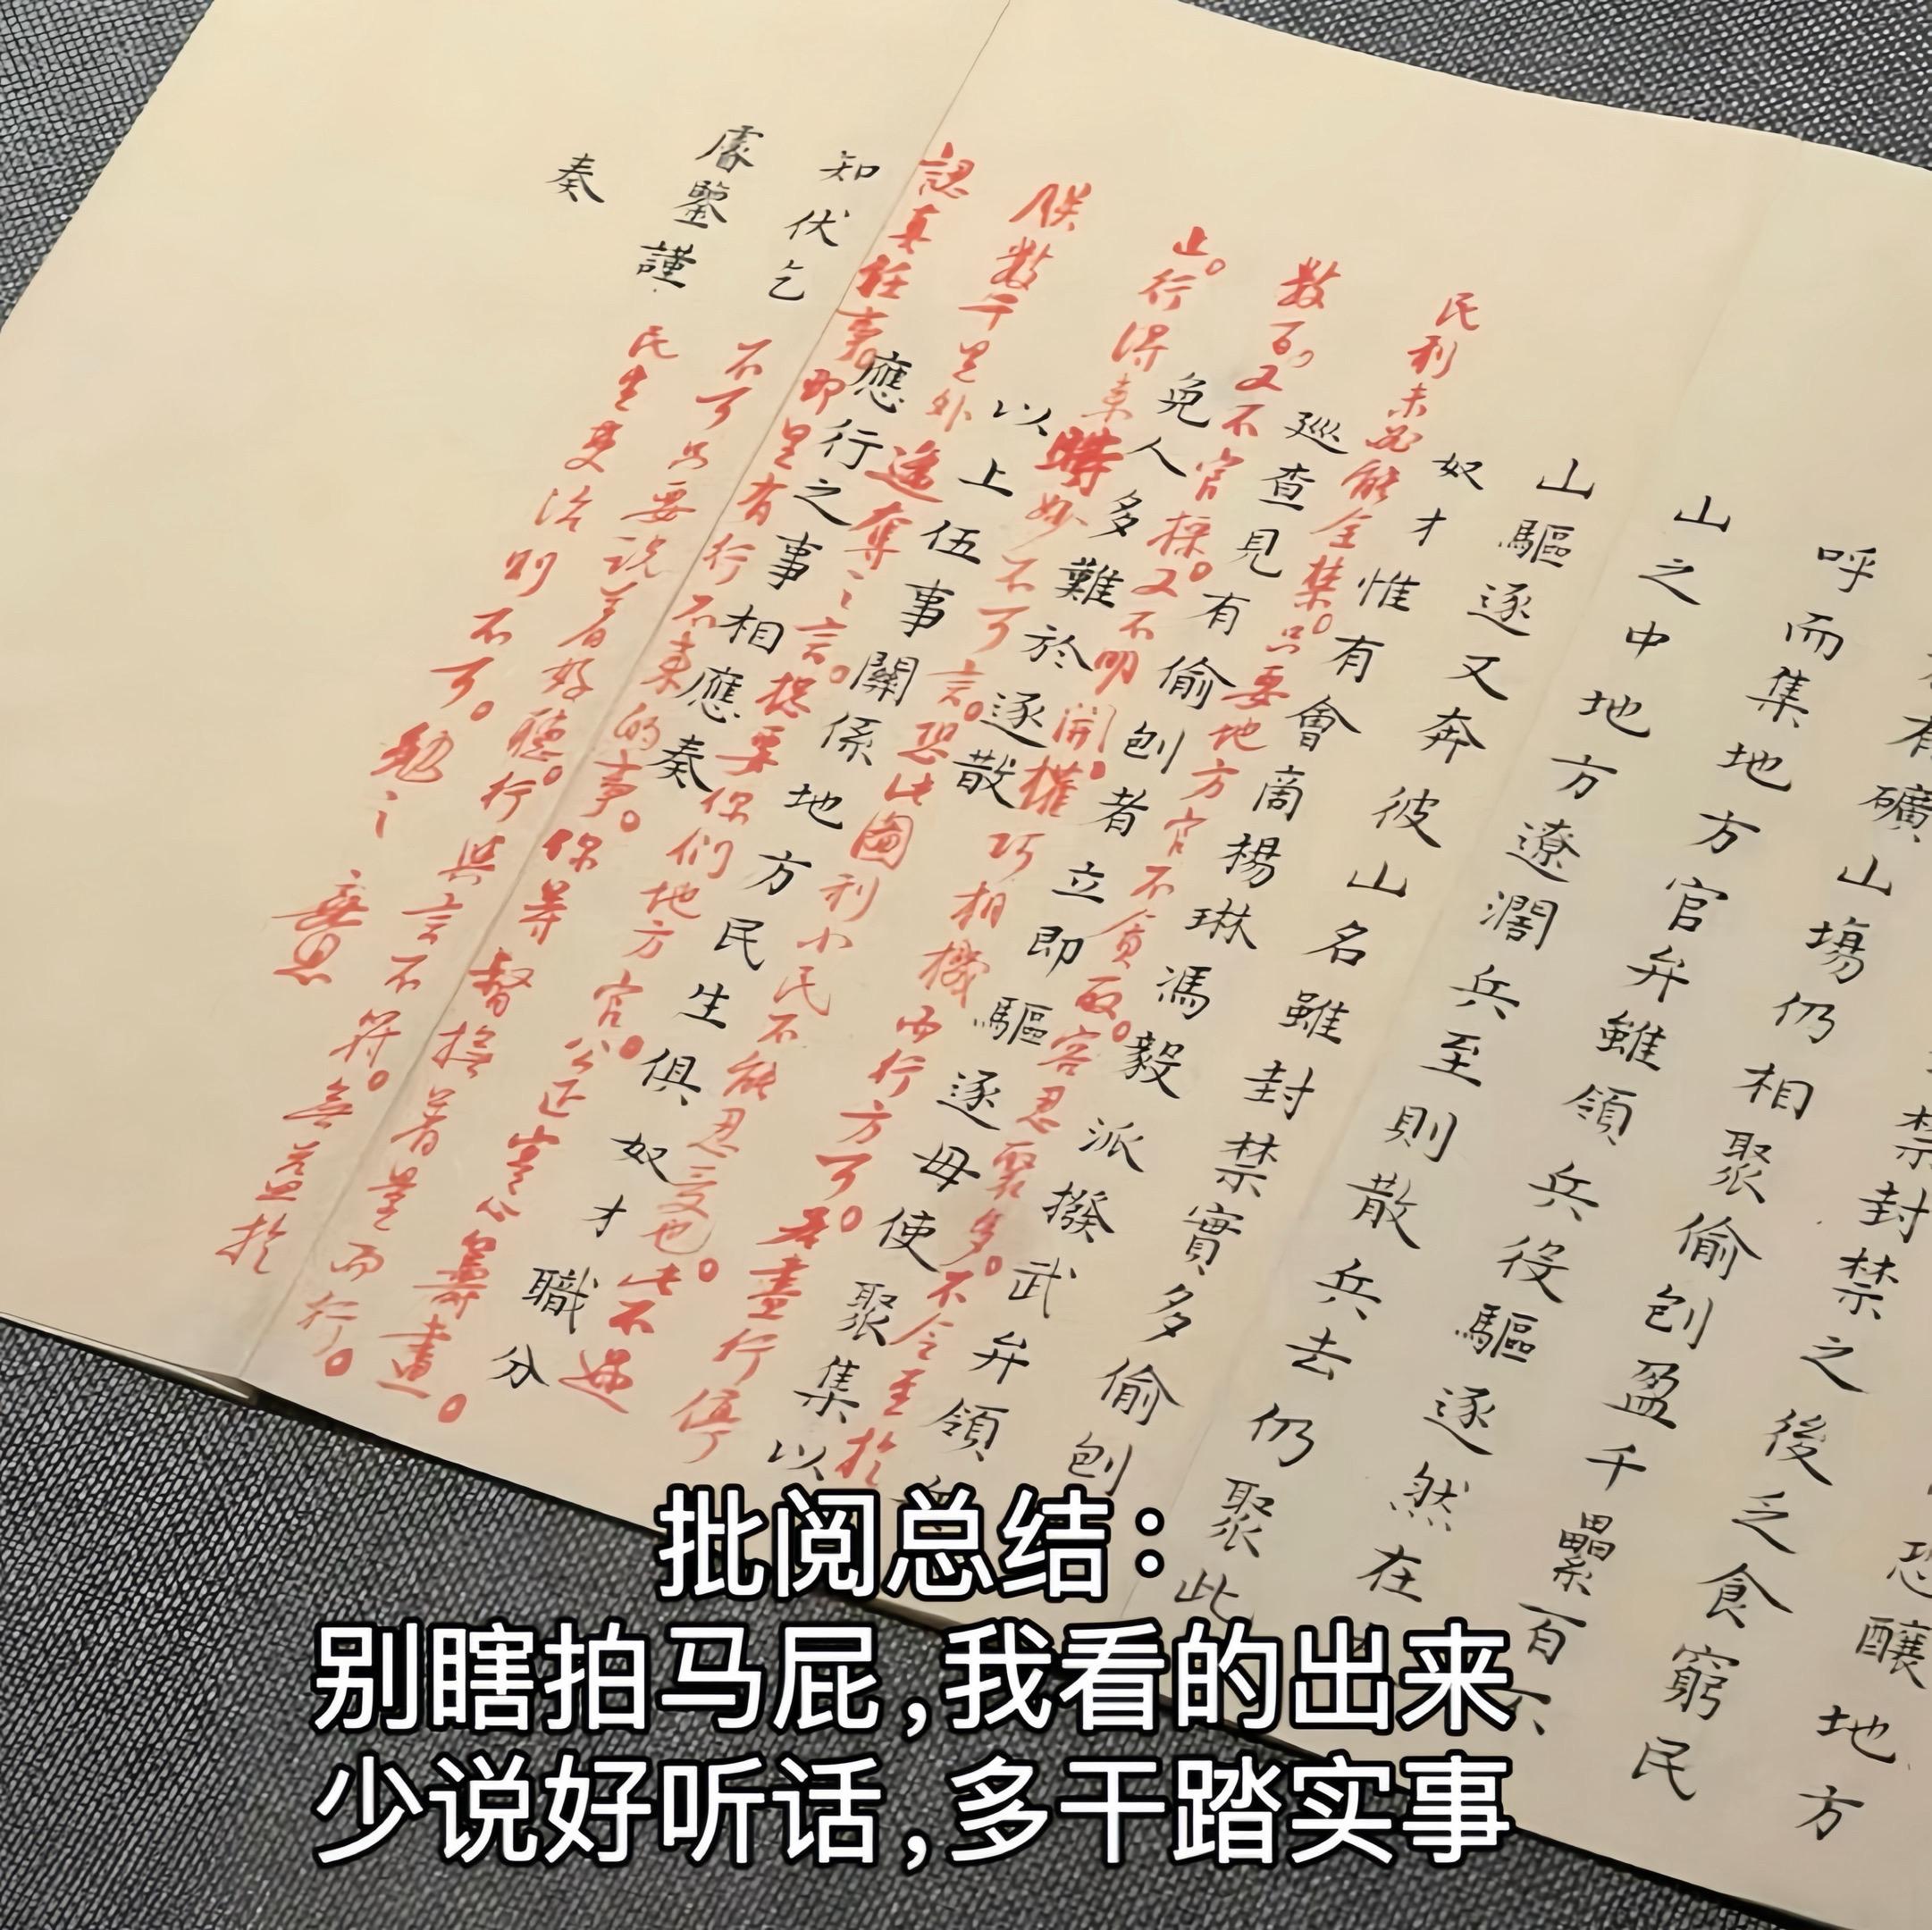 恐釀地方
禁封禁之後乏食窮民
有礦山塲仍相聚偷刨盈千纍百
呼而集地方官弁雖領兵役驅逐然在
山之中地方遼濶兵至則散兵去仍聚此
山驅逐又奔彼山名雖封禁實多偷刨
奴才惟有會商楊琳馮毅派撥武弁領
巡查見有偷刨者立即驅逐毋使聚集以
免人多難於逐散
以上伍事關係地方民生俱奴才職分
應行之事相應奏
知伏乞
睿鑒謹
奏
民利未必能全禁。只要地方官不貪取。容忍聚多。不令至於
數百。又不官採。又不明開。權巧相機而行方可。若盡行停
止。行得來時妙不可言。恐此圖利小民不能忍受也。此不過
朕數千里外遙奪之言。總要你們地方官。公正寔心籌畫。
認真任事。即果有行不來的事。你等督撫着量而行。
不可只要説着好聽。行與言不符。無益於
民生吏治則不可。勉之
批阅总结：
别瞎拍马屁,我看的出来
少说好听话,多干踏实事